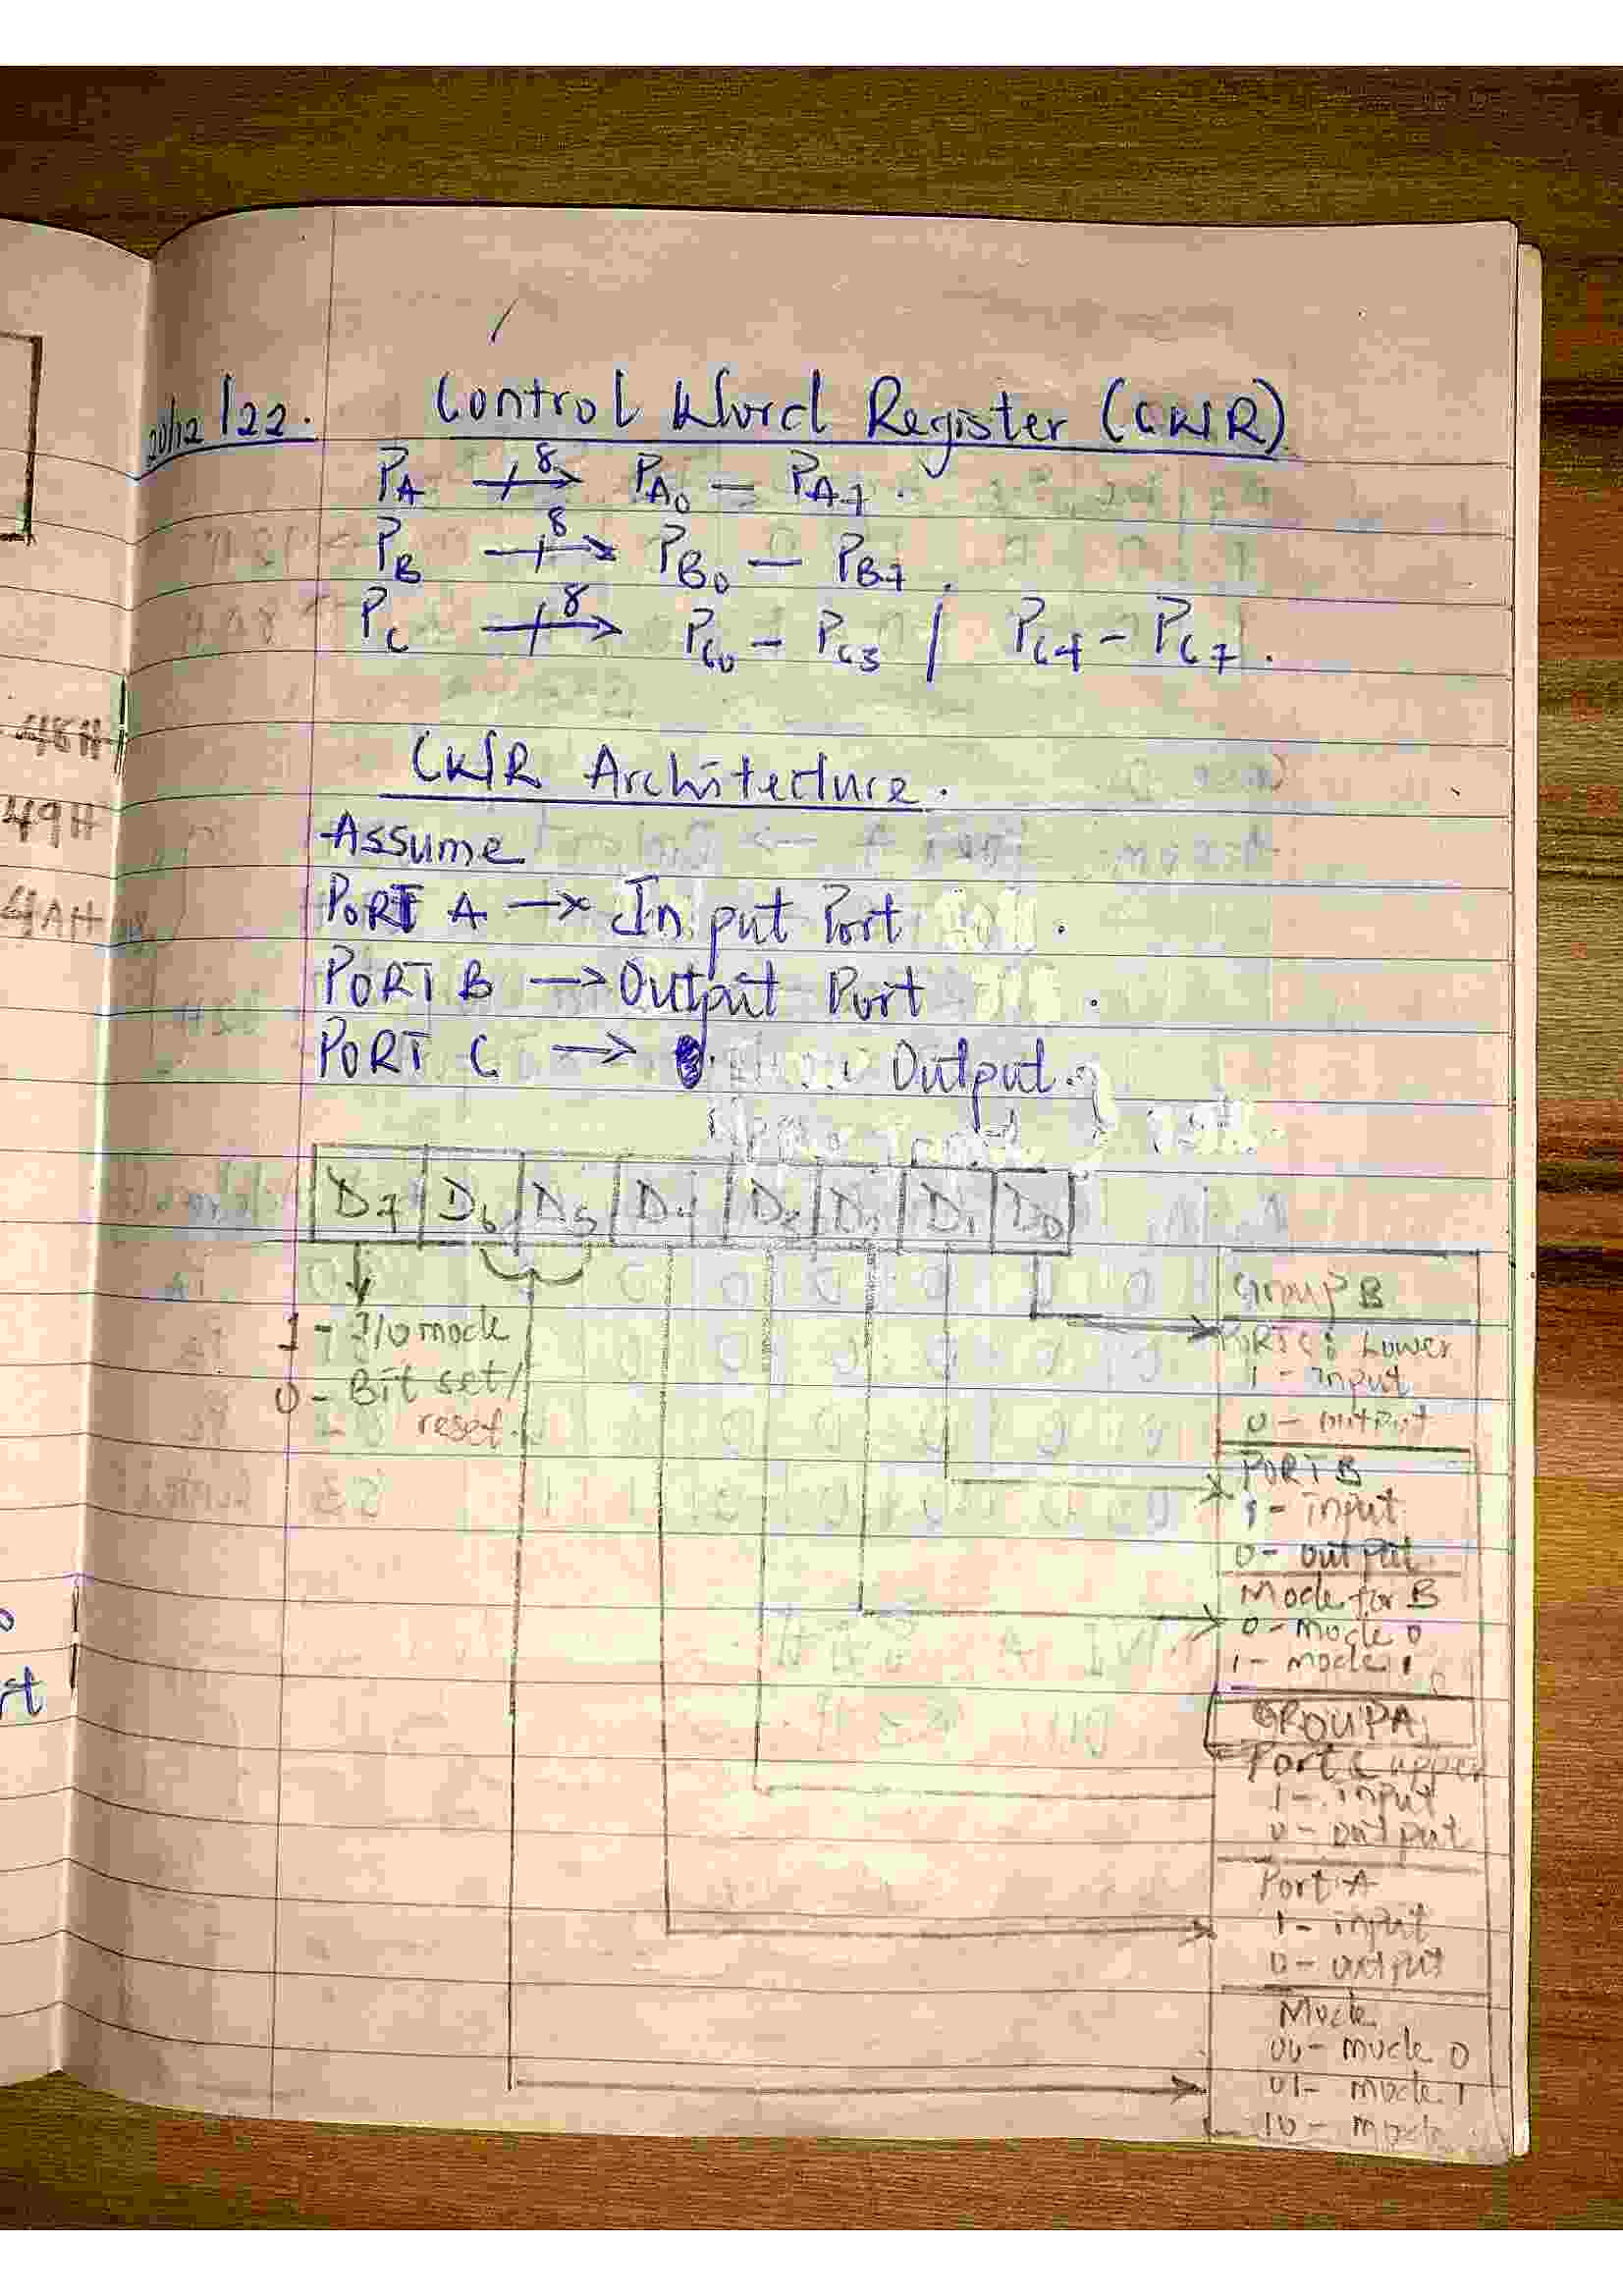 20/12/22. Control Word Register (CWR)
PA 8 PA0 - PA7.
PB 8 PB0 - PB7.
PC 8 PC0 - PC3 / PC4 - PC7.
CWR Architecture.
Assume
PORT A → Input Port
PORT B → Output Port
PORT C → Output.
D7 D6 D5 D4 D3 D2 D1 D0
1 - I/O mode
0 - Bit set/
reset.
Group B
PORT C: Lower
1 - input
0 - output
PORT B
1 - input
0 - output
Mode for B
0 - mode 0
1 - mode 1
GROUP A
Port C upper
1 - input
0 - output
Port A
1 - input
0 - output
Mode
00 - mode 0
01 - mode 1
10 - mode
48H
49H
4AH
rt